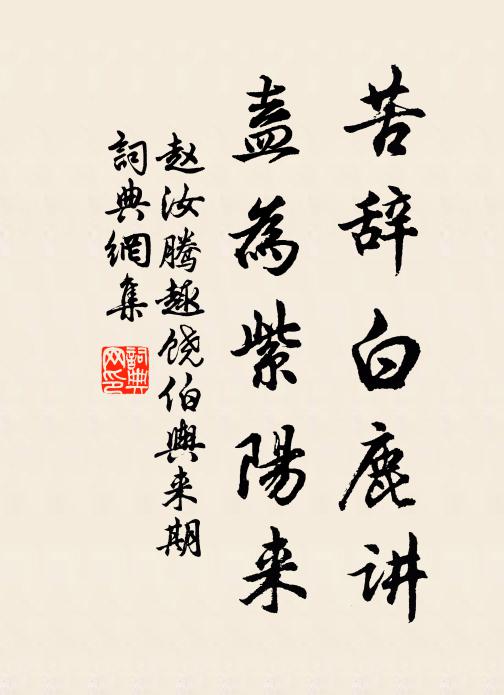 苦辞白鹿讲
盍为紫陽来
赵汝腾趣饶伯興来期
詞典網集
詞典网印